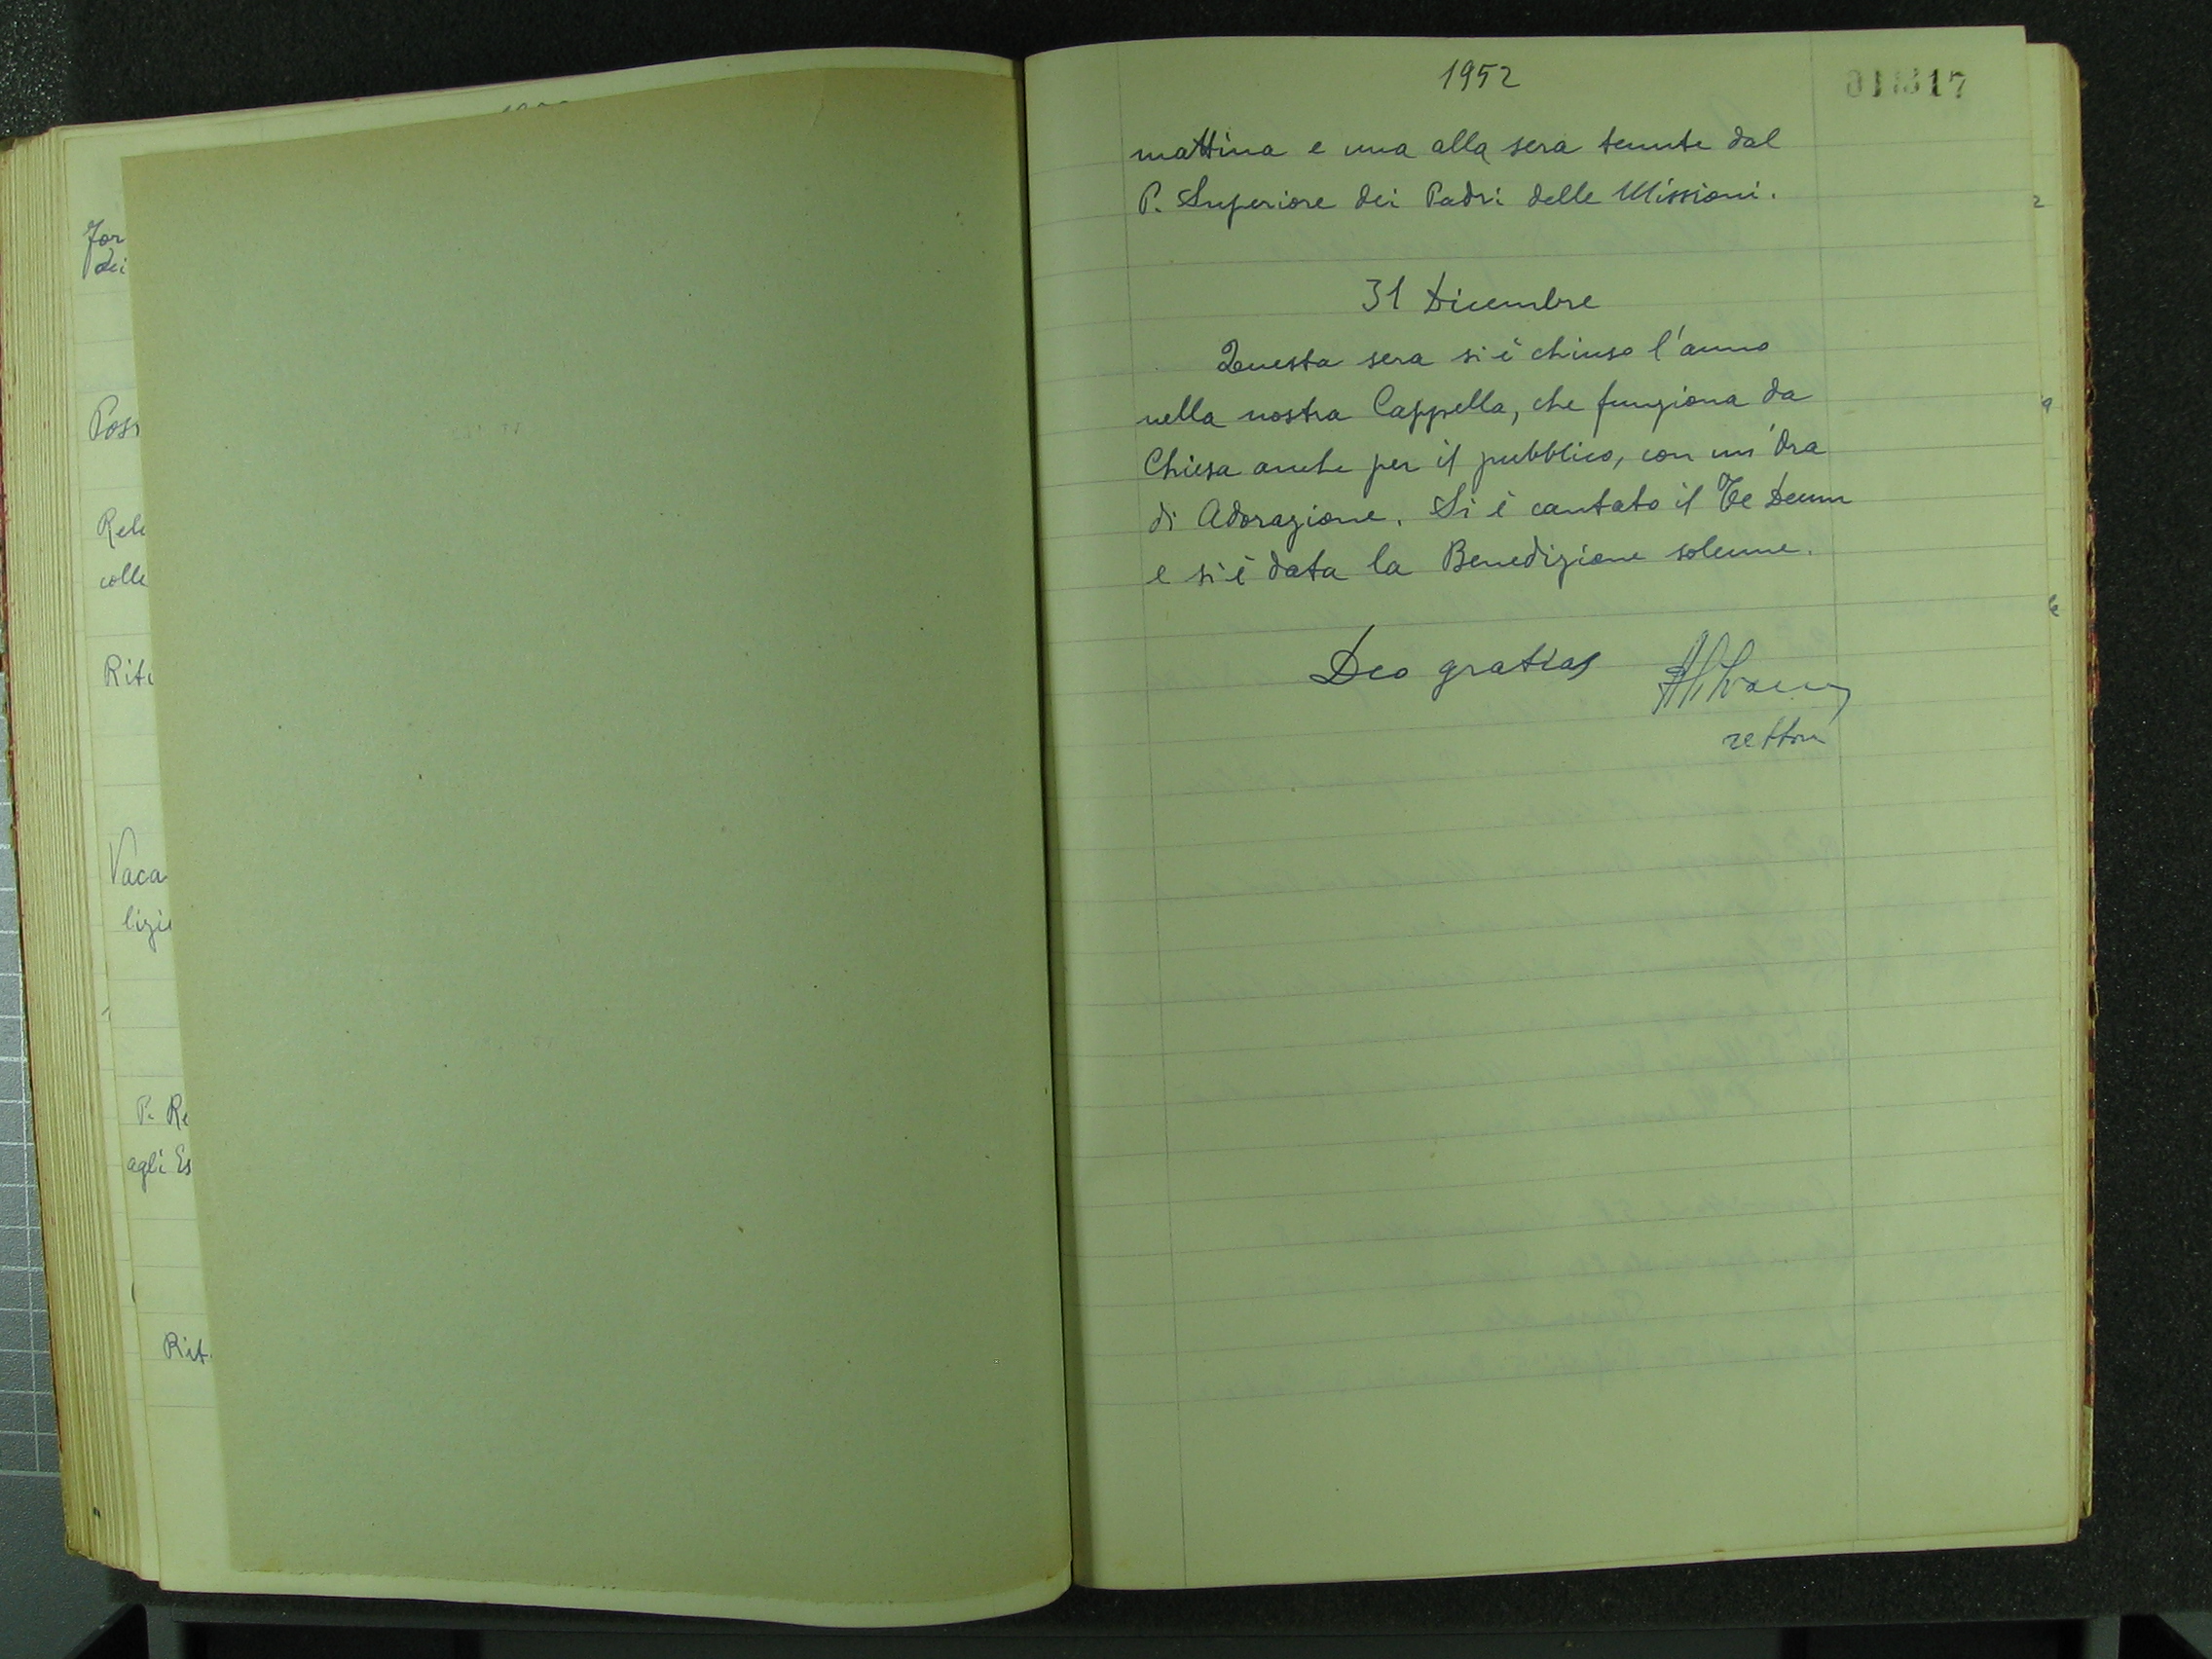 For
dei
Poss
Rela
colle
Rit
Vaca
lizi
P. Re
agli Es
Rit
1952
mattina e una alla sera tenute dal
P. Superiore dei Padri delle Missioni.
31 Dicembre
Questa sera si è chiuso l'anno
nella nostra Cappella, che funziona da
Chiesa anche per il pubblico, con un'Ora
di Adorazione. Si è cantato il Te Deum
e si è data la Benedizione solenne.
Deo gratias
rettore